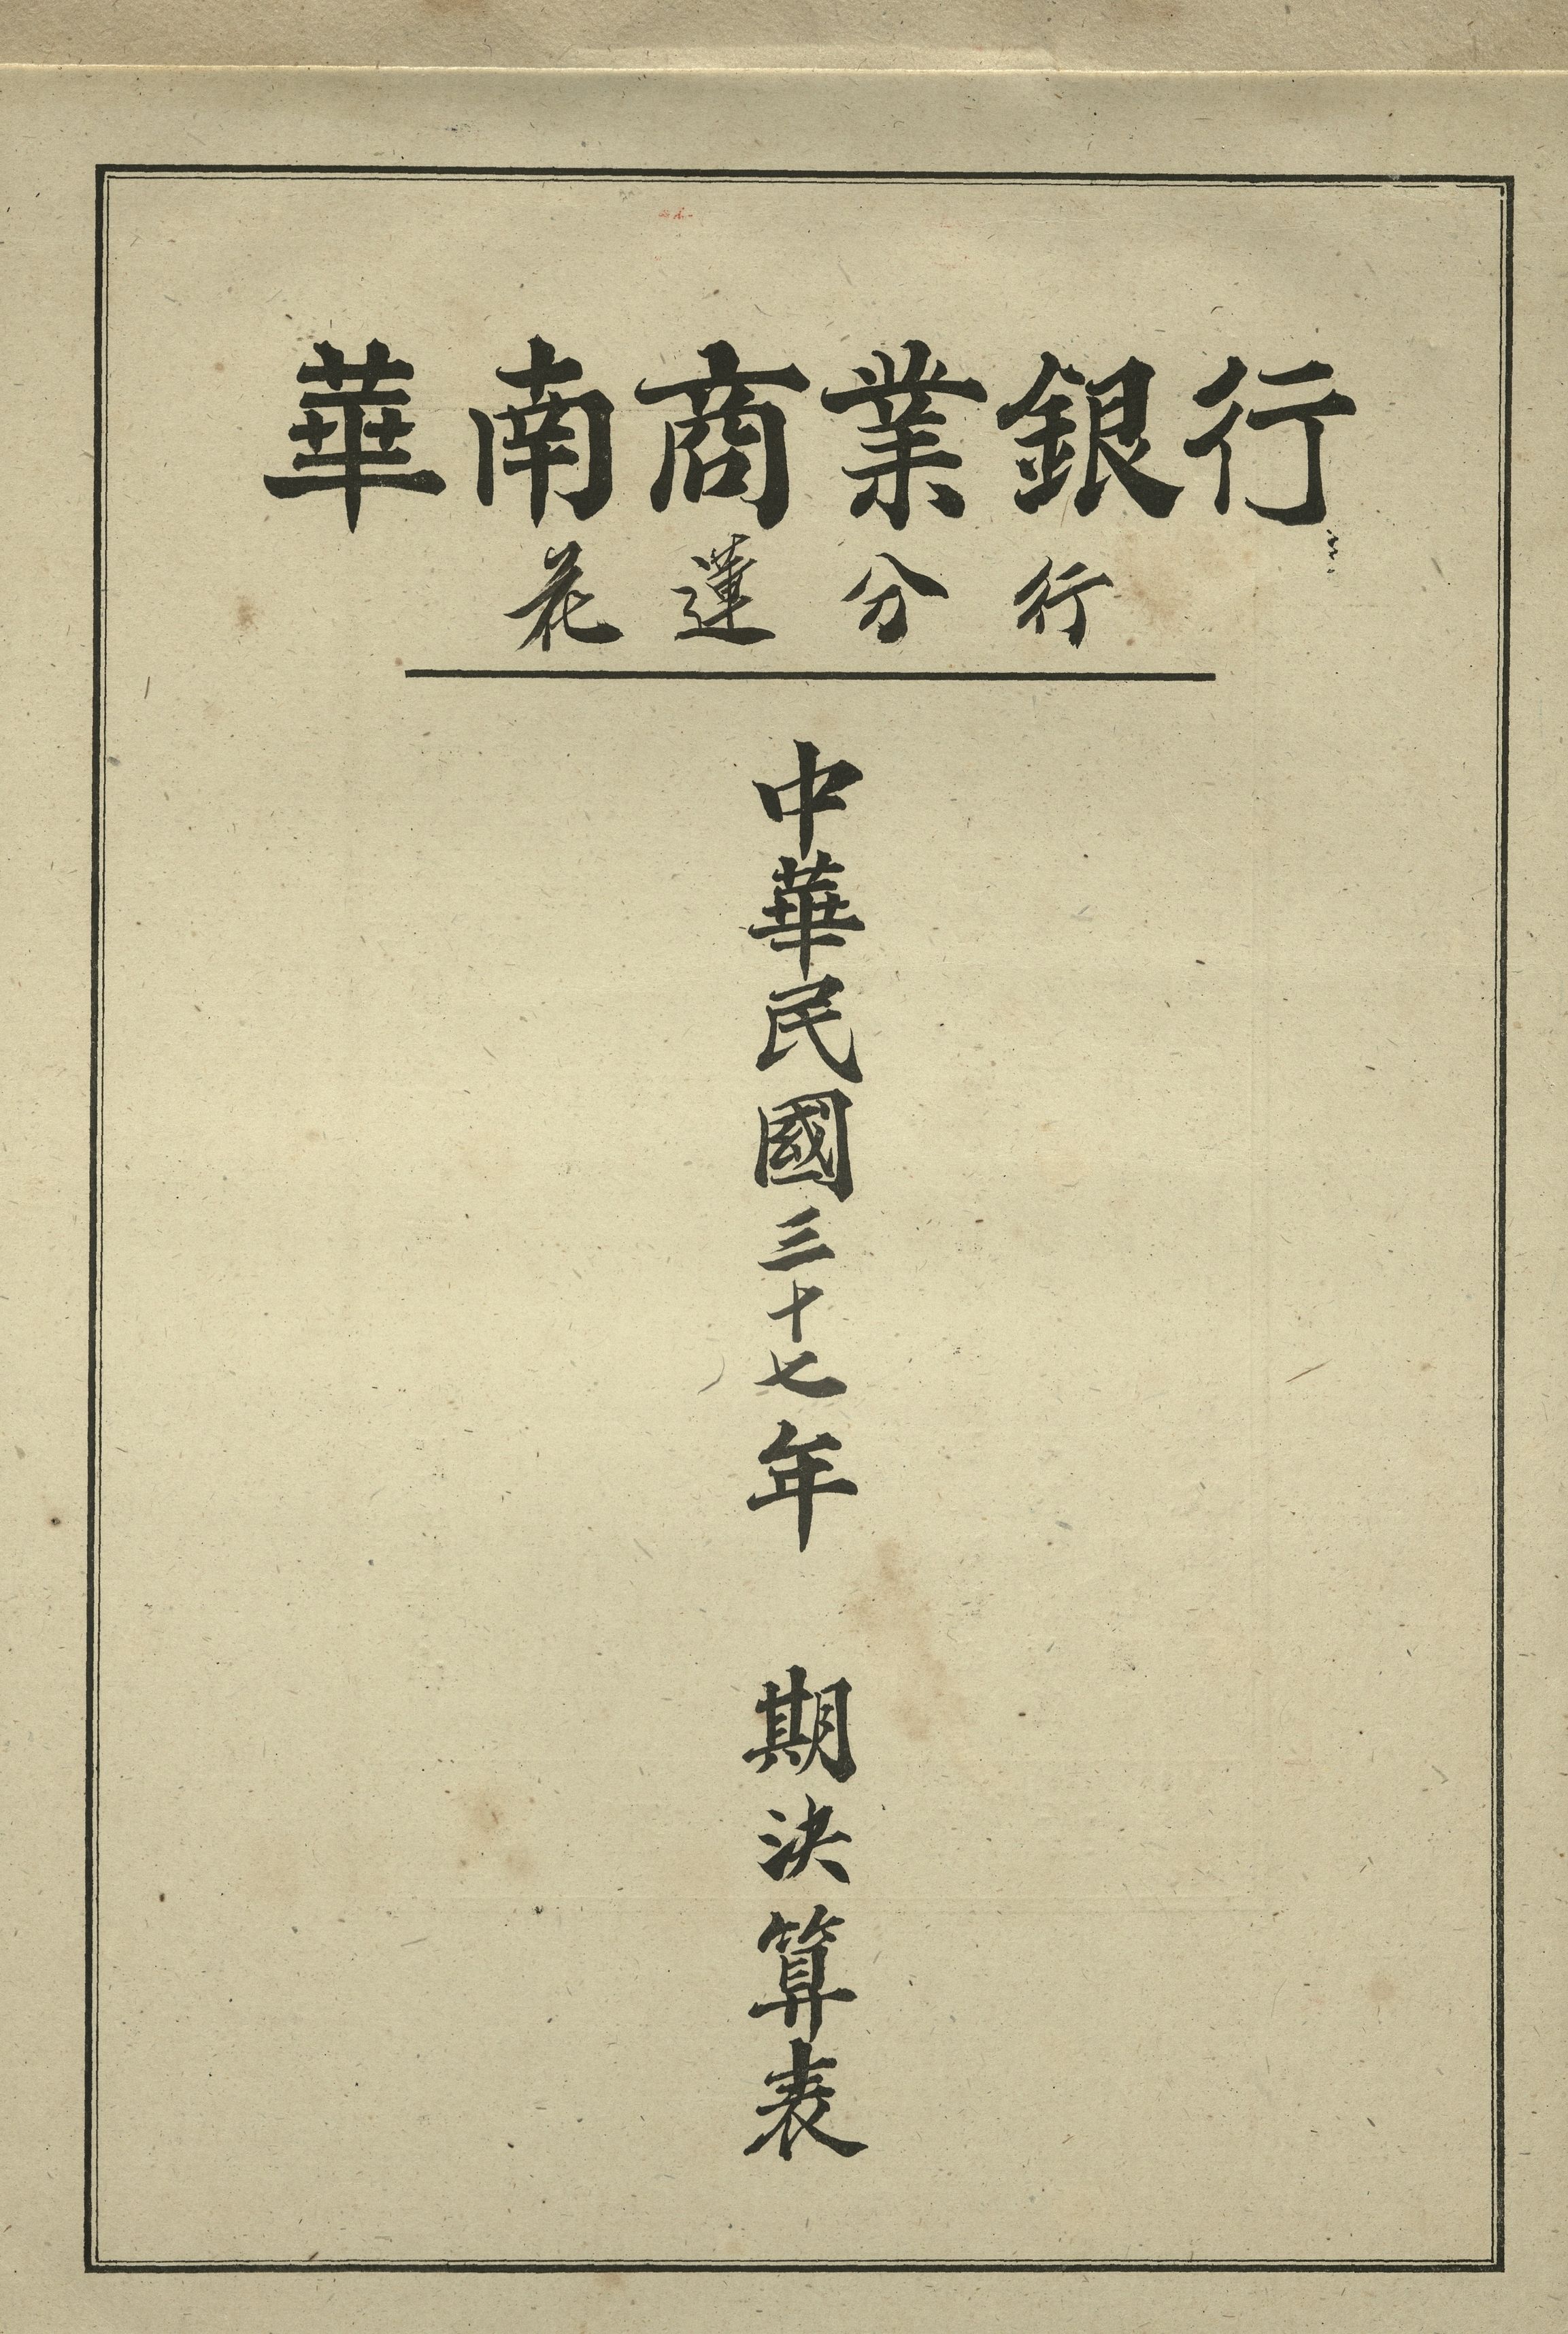 華南商業銀行
花蓮分行
中華民國三十七年　期決算表